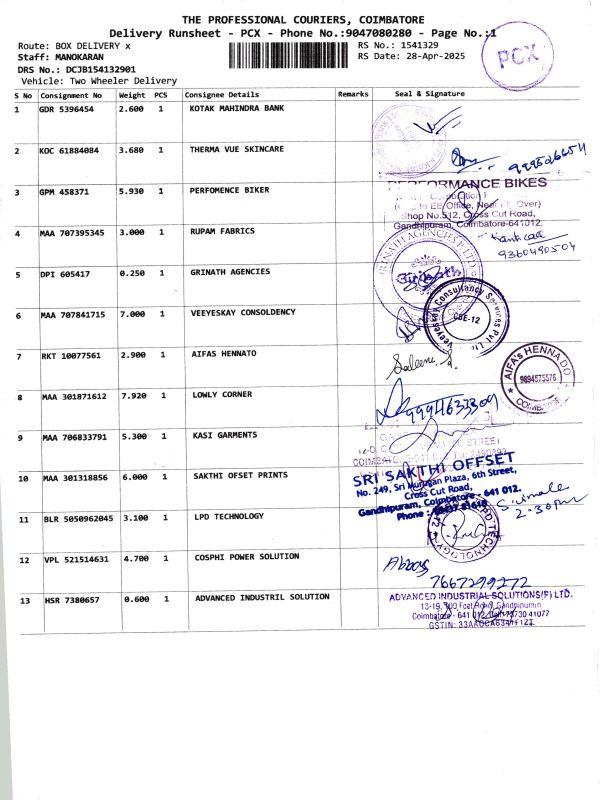 THE PROFESSIONAL COURIERS, COIMBATORE
Delivery Runsheet - PCX - Phone No.:9047080280 - Page No.:1
Route: BOX DELIVERY x
RS No.: 1541329
Staff: MANOKARAN
RS Date: 28-Apr-2025
DRS No.: DCJB154132901
Vehicle: Two Wheeler Delivery
PCX
S No Consignment No Weight PCS Consignee Details Remarks Seal & Signature
1 GDR 5396454 2.600 1 KOTAK MAHINDRA BANK
2 KOC 61884084 3.680 1 THERMA VUE SKINCARE
3 GPM 458371 5.930 1 PERFOMENCE BIKER
PERFORMANCE BIKES
Shop No.512, Cross Cut Road,
Gandhipuram, Coimbatore-641012.
4 MAA 707395345 3.000 1 RUPAM FABRICS
9360490504
5 DPI 605417 0.250 1 GRINATH AGENCIES
6 MAA 707841715 7.000 1 VEEYESKAY CONSOLDENCY
Veeyeskay Consultancy Services Pvt. Ltd
CBE-12
7 RKT 10077561 2.900 1 AIFAS HENNATO
AIFA's HENNA DO
9894575576
COIMBATORE
8 MAA 301871612 7.920 1 LOWLY CORNER
9994633309
9 MAA 706833791 5.300 1 KASI GARMENTS
STREET
10 MAA 301318856 6.000 1 SAKTHI OFSET PRINTS
SRI SAKTHI OFFSET
No. 249, Sri Murugan Plaza, 6th Street,
Cross Cut Road,
Gandhipuram, Coimbatore - 641 012.
Phone :
2-30pm
11 BLR 5050962045 3.100 1 LPD TECHNOLOGY
12 VPL 521514631 4.700 1 COSPHI POWER SOLUTION
7667299272
13 HSR 7380657 0.600 1 ADVANCED INDUSTRIL SOLUTION
ADVANCED INDUSTRIAL SOLUTIONS(P) LTD.
13-19, 100 Feet Road, Gandhipuram
Coimbatore - 641 012